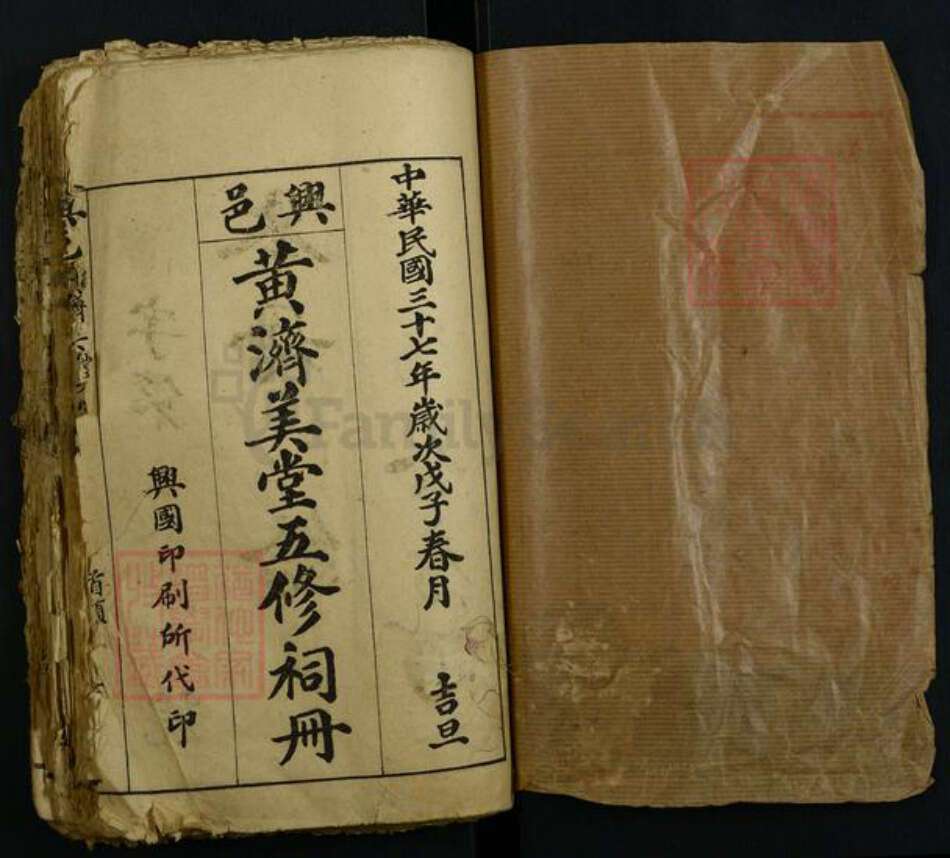 中華民國三十七年歲次戊子春月 吉旦
興邑
黃濟美堂五修祠冊
興國印刷所代印